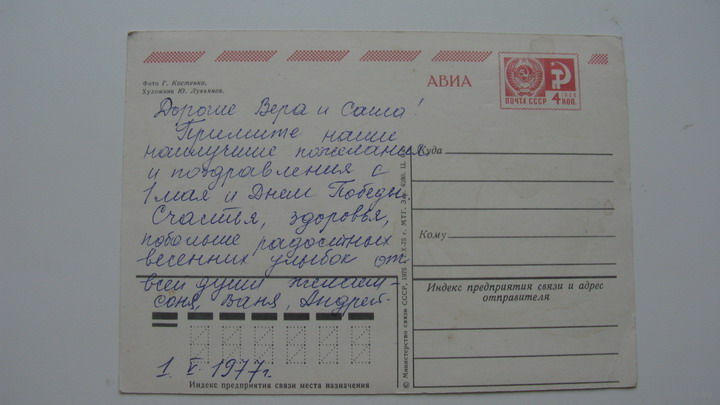 Фото Г. Костенко.
Художник Ю. Лукьянов.
АВИА
ПОЧТА СССР 4 КОП.
Дорогие Вера и Саша!
Примите наши
наилучшие пожелания
и поздравления с
1 мая и Днем Победы.
Счастья, здоровья,
побольше радостных
весенних улыбок от
всей души желаем –
Соня, Ваня, Андрей.
1. V. 1977г.
Индекс предприятия связи места назначения
© Министерство связи СССР, 1975
Куда
Кому
Индекс предприятия связи и адрес
отправителя